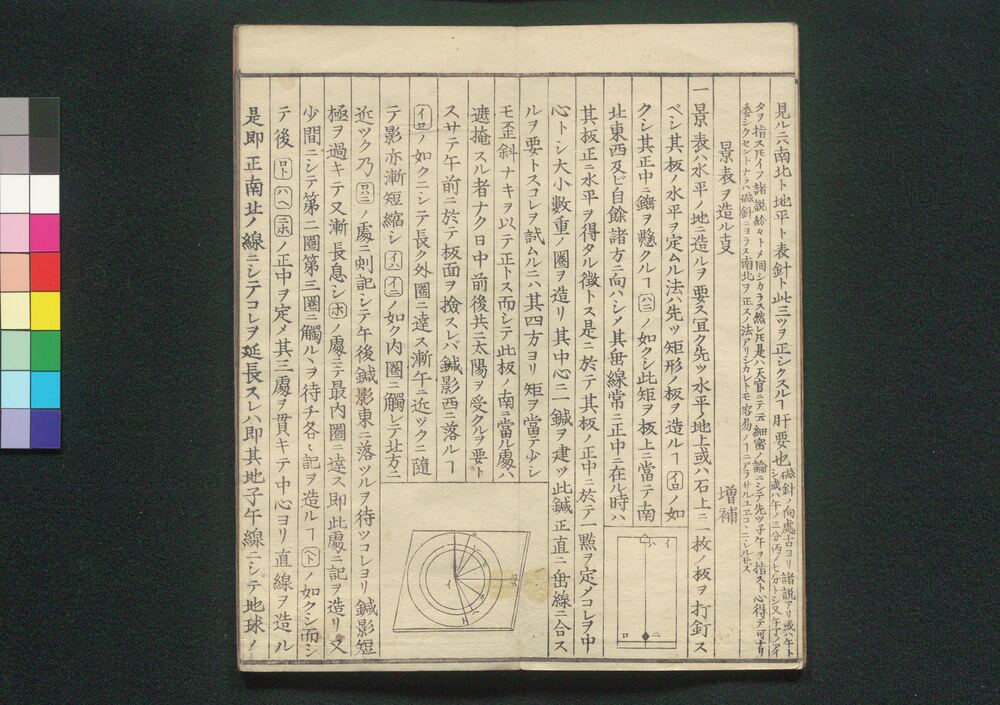 見ルニ南北ト地平ト表針ト此三ツヲ正シクスルヿ肝要也
磁針ノ向處古ヨリ諸説アリ或ハ午ト
シ或ハ午ノ三分丙ノ七分トシ又午丁ノアイ
タヲ指ス𪜈イフ諸説紛々トメ同シカラス然レ𪜈是ハ天官ニテ云細密ノ論ニシテ先ツ子午ヲ指スト心得テ可ナリ
委シクセントナラハ磁針ニヨラス南北ヲ正スノ法アリシカレトモ容易ノヿニアラサルユエコヽニシルサス
景表ヲ造ル支 増補
一景表ハ水平ノ地ニ造ルヲ要ス冝ク先ツ水平ノ地上或ハ石上ニ一枚ノ板ヲ打釘ス
ベシ其板ノ水平ヲ定ムル法ハ先ツ矩形ノ板ヲ造ルヿイロノ如
クシ其正中ニ錘ヲ懸クルヿハニノ如クシ此矩ヲ板上ニ當テ南
北東西及ビ自餘諸方ニ向ハシメ其垂線常ニ正中ニ在ル時ハ
其板正ニ水平ヲ得タル徴トス是ニ於テ其板ノ正中ニ於テ一點ヲ定メコレヲ中
心トシ大小數重ノ圏ヲ造リ其中心ニ一鍼ヲ建ツ此鍼正直ニ垂線ニ合ス
ルヲ要トスコレヲ試ムルニハ其四方ヨリ矩ヲ當テ少シ
モ歪斜ナキヲ以テ正トス而シテ此板ノ南ニ當ル處ハ
遮掩スル者ナク日中前後共ニ太陽ヲ受クルヲ要ト
スサテ午前ニ於テ板面ヲ撿スレバ鍼影西ニ落ルヿ
イロノ如クニシテ長ク外圏ニ達ス漸午ニ近ツクニ隨
テ影亦漸短縮シイハイニノ如ク内圏ニ觸レテ北方ニ
近ツク乃ロハニノ處ニ刻記シテ午後鍼影東ニ落ツルヲ待ツコレヨリ鍼影短
極ヲ過キテ又漸長息シホノ處ニテ最内圏ニ達ス即此處ニ記ヲ造リ又
少間ニシテ第二圏第三圏ニ觸ルヽヲ待チ各〻記ヲ造ルヿヘトノ如クシ而シ
テ後ロトハヘニホノ正中ヲ定メ其三處ヲ貫キテ中心ヨリ直線ヲ造ル
是即正南北ノ線ニシテコレヲ延長スレハ即其地子午線ニシテ地球ノ
イ
ハ
ロ
ニ
イ